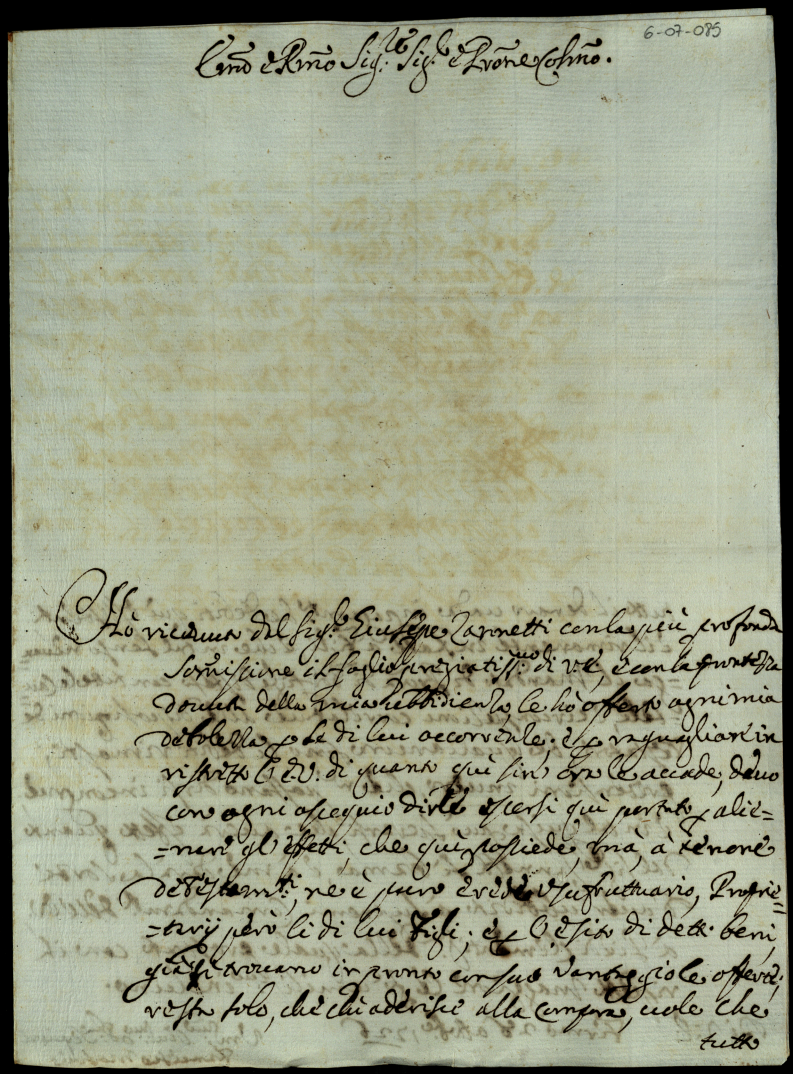 6-07-085
Emõ è Rmõ Sig.re Sig.r è Prõne Colmõ.
Hò riceuuto dal Sig.r Giuseppe Zannetti con la più profonda
Somissione il foglio preziatiss.mo di V.E, è con la prontezza
douuta della mia ubbidienza le hò offerto ogni mia
debolezza p le di lui occorrenze; è p raguagliare in
ristretto l'E.V. di quanto quì sin'ora le accade, deuo
con ogni ossequio dirle essersi quì portato p alie=
=nare gl'effetti, che quì possiede, mà, à tenore
de Testam.ti, ne è puro erede usufruttuario, Proprie=
=tarij però li di lui Figli; è p l'esito di detti beni,
già si trouano in pronto con suo vantaggio le offerte;
resta solo, che chi aderisce alla compra, uole che
tutto